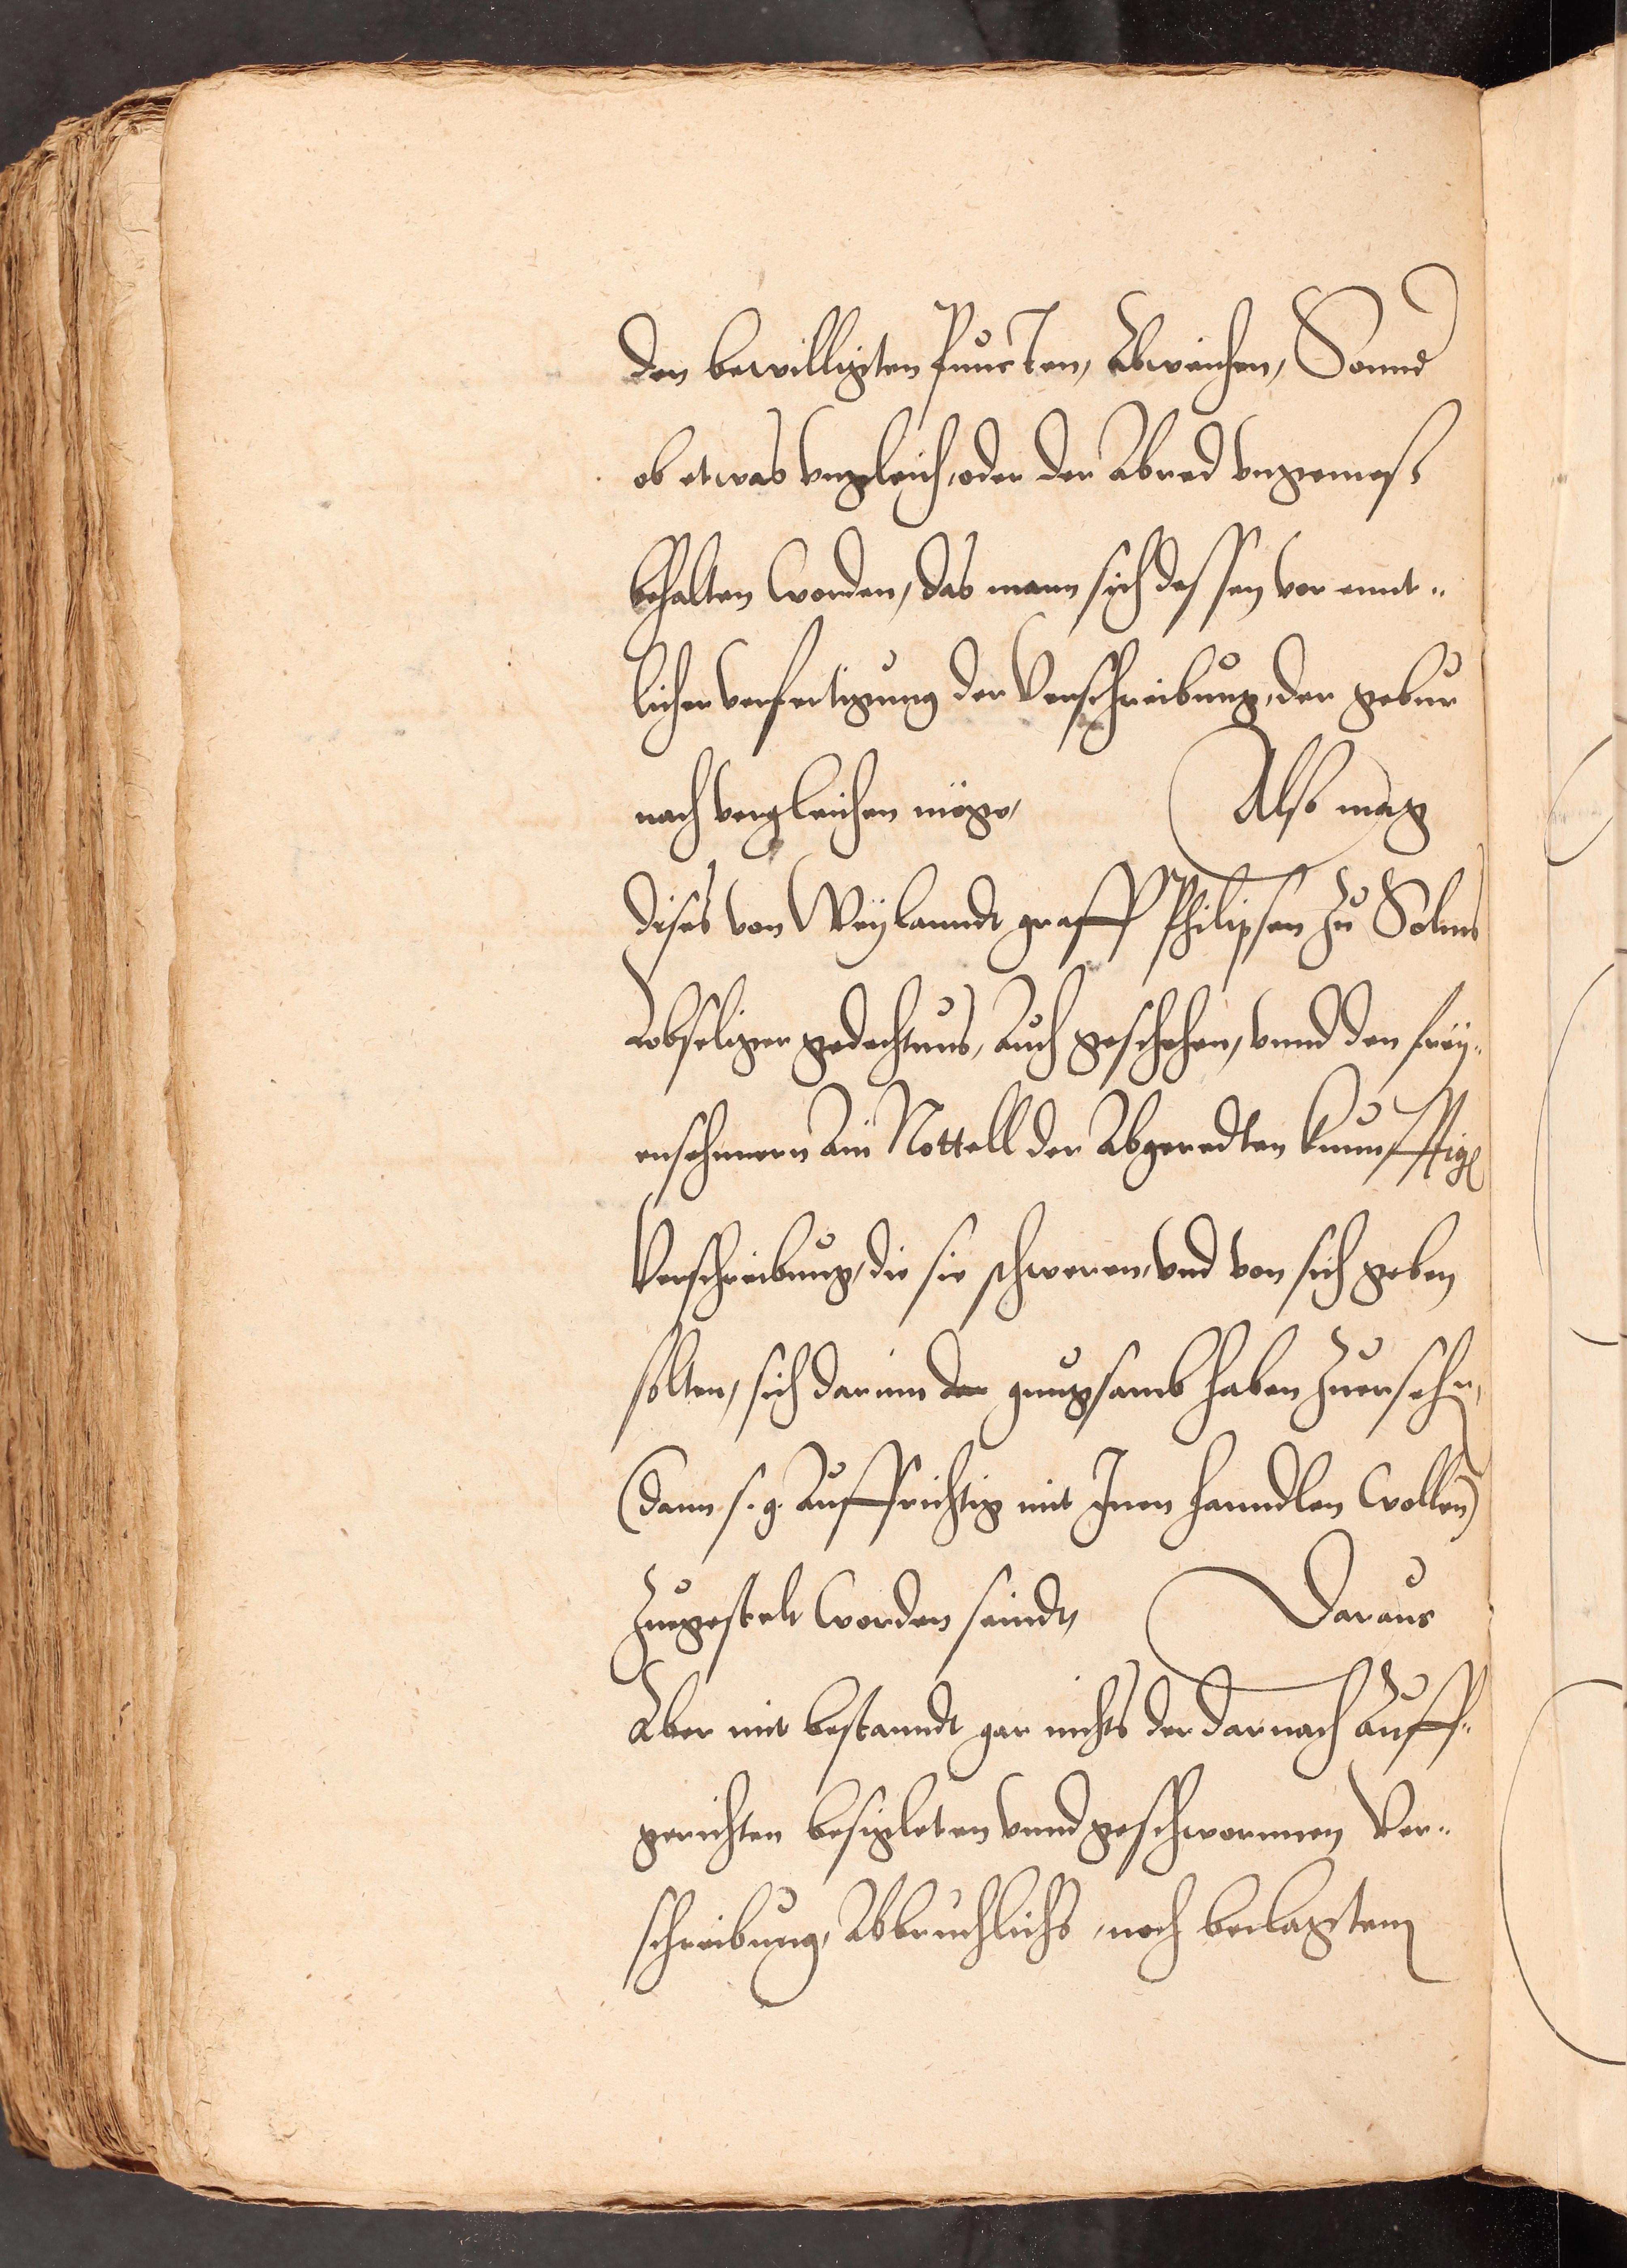 den bewilligten puncten, Abweichen, Sonnd
ob etwas vngleich, oder der Abred vngemeß
behalten worden, das mann sich dessen vor ennt„
licher verfertigung der Verschreibung, der gebur
nach vergleichen möge, Also mag
dises von Weylanndt graff Philipsen zu Solms
lobseliger gedechtnus, auch geschehen, vnnd den frey„
enschmern Nottell der Abgeredten kunnfftige
Verschreibung, die sie schweren, vnd von sich geben
solten, sich darinn gnugsamb haben zuersehn,
(dann s. g. Auffrichtig mit Inen hanndlen wollen)
zugestelt worden seindt, Daraus
Aber mit bestanndt gar nichts der darnach Auff„
gerichten besigleten vnnd geschwornnen Ver„
schreibung, Abbruchlichs, noch beclagtem